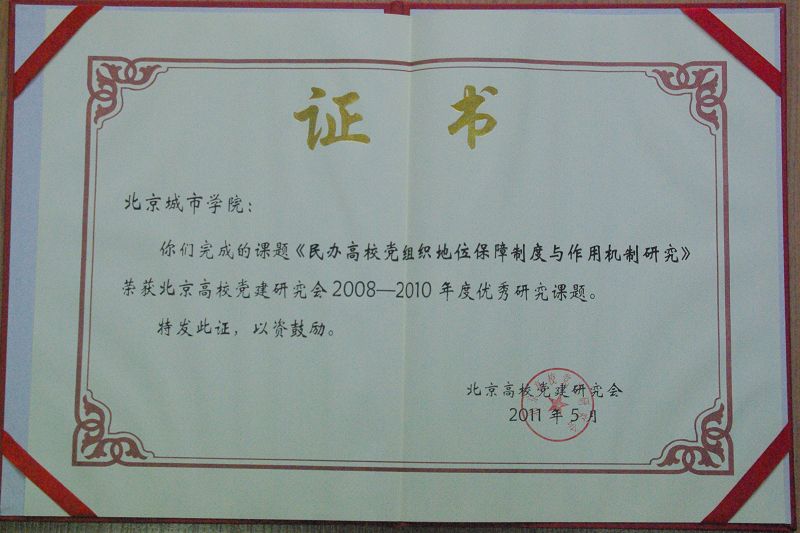 证书
北京城市学院：
你们完成的课题《民办高校党组织地位保障制度与作用机制研究》
荣获北京高校党建研究会2008—2010年度优秀研究课题。
特发此证，以资鼓励。
北京高校党建研究会
2011年5月